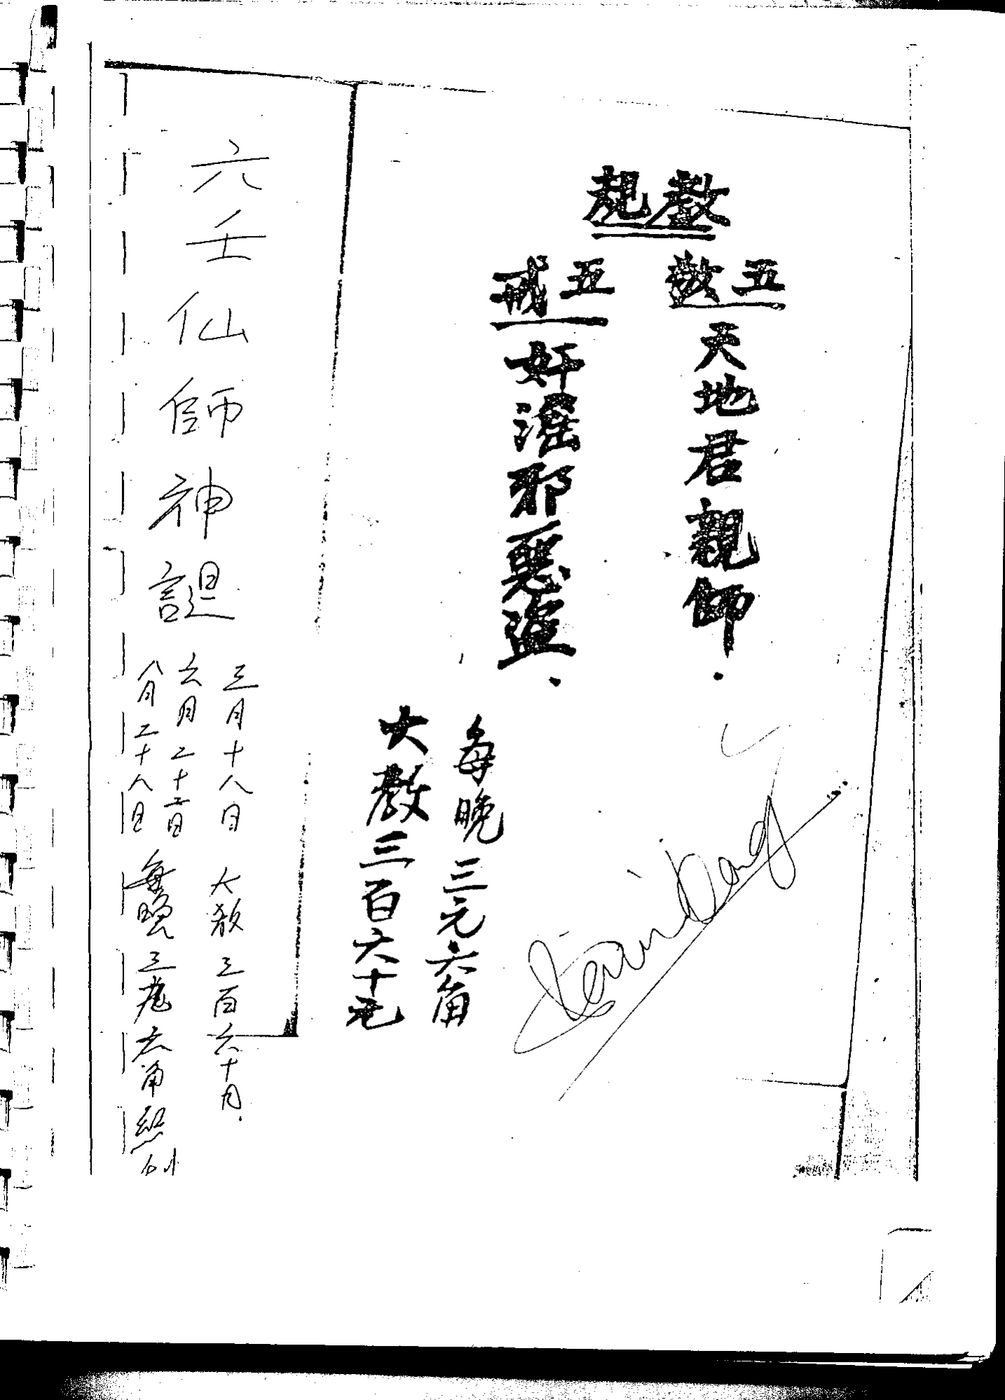 教規
五敬
天地君親師.
五戒
奸淫邪惡盜.
每晚三元六角
大教三百六十元
六壬仙師神誕
三月十八日
六月二十二日
八月二十八日
大教三百六十月.
每晚三元六角